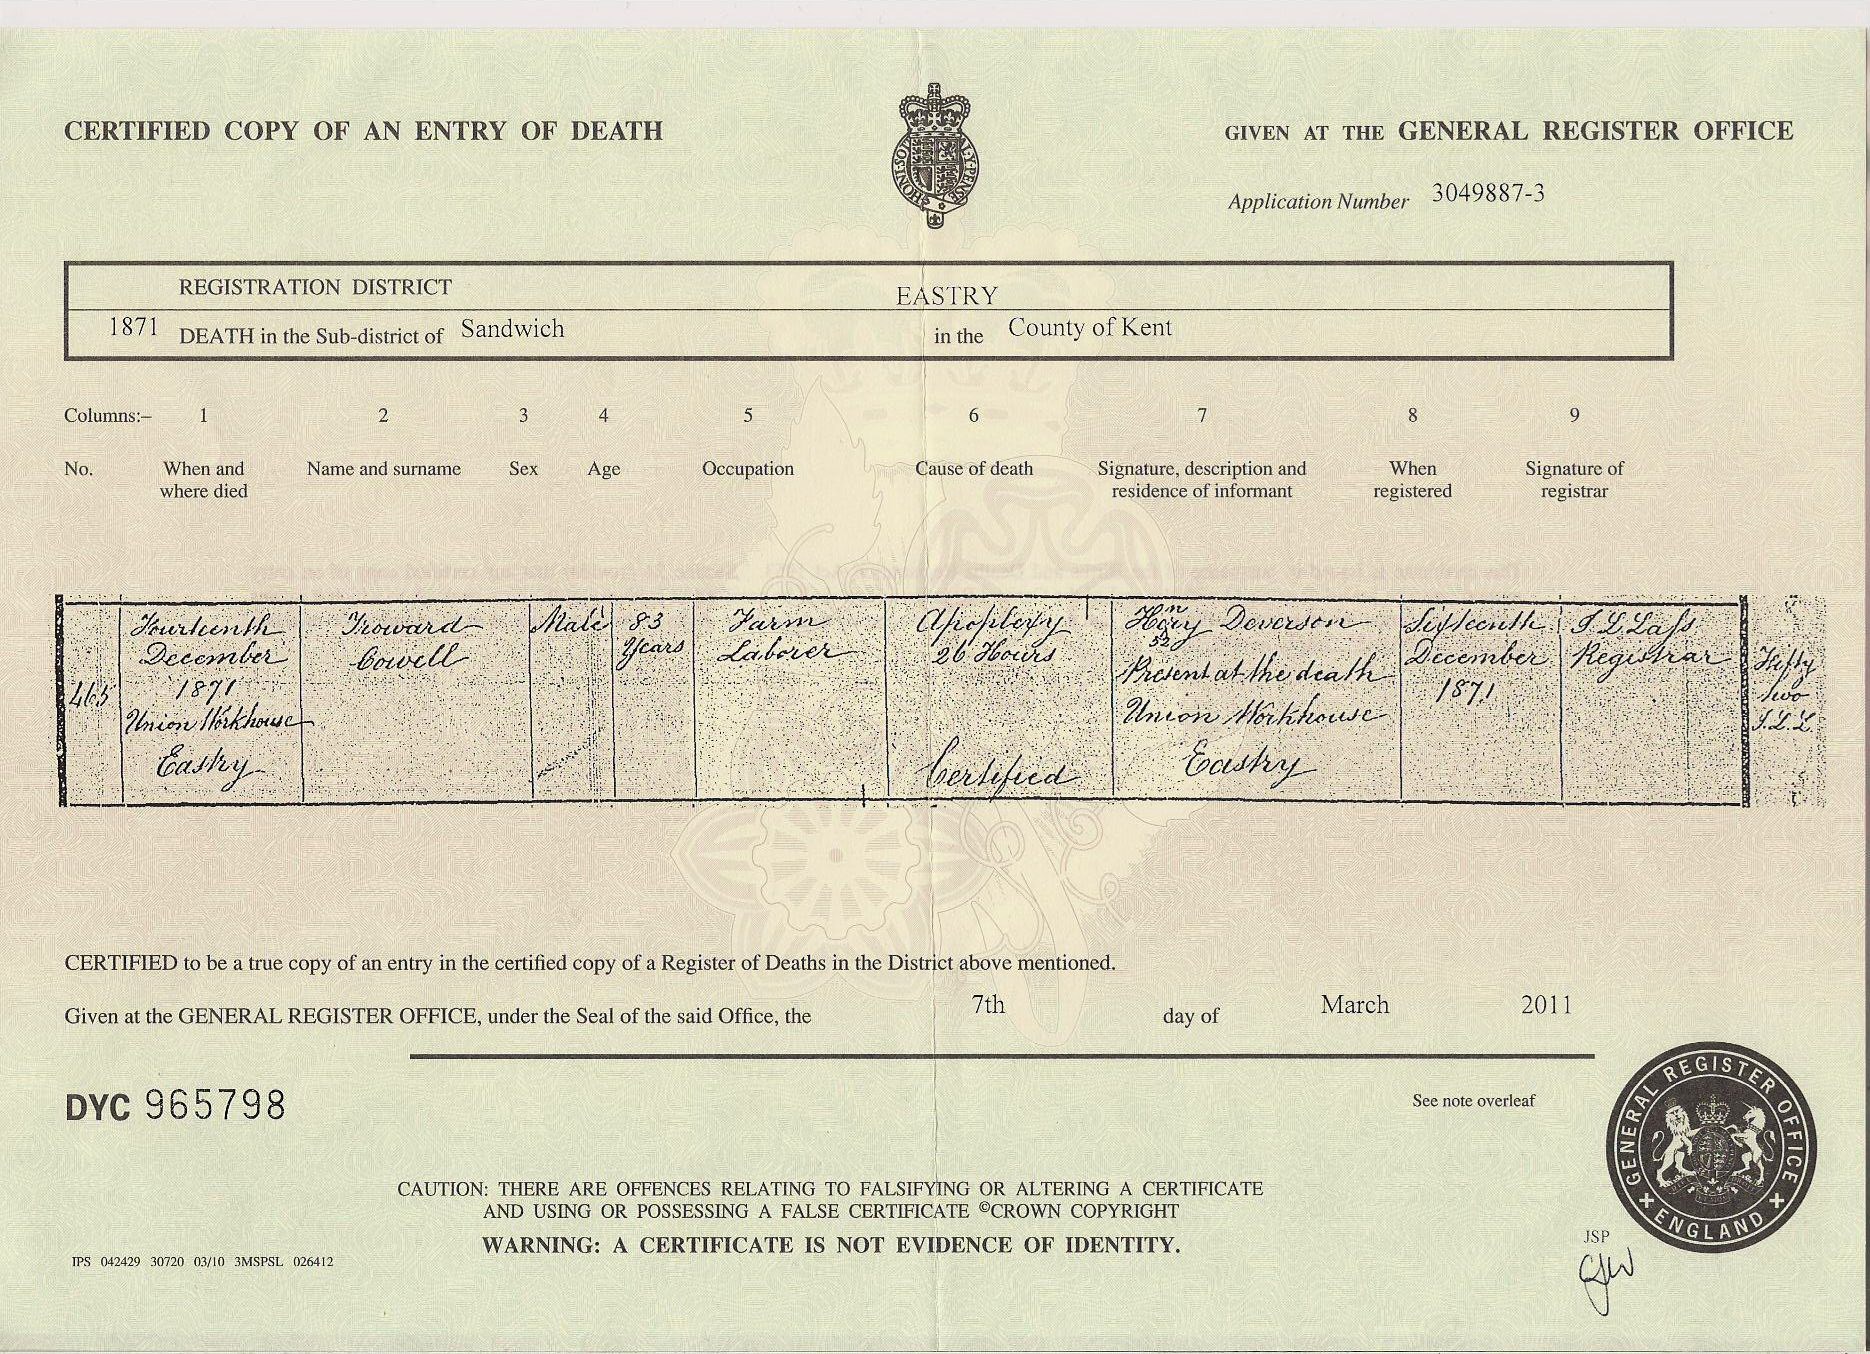 CERTIFIED COPY OF AN ENTRY OF DEATH
GIVEN AT THE GENERAL REGISTER OFFICE
HONI SOI MAL Y PENSE
Application Number 3049887-3
REGISTRATION DISTRICT EASTRY
1871 DEATH in the Sub-district of Sandwich in the County of Kent
Columns:– 1 2 3 4 5 6 7 8 9
No. When and where died Name and surname Sex Age Occupation Cause of death Signature, description and residence of informant When registered Signature of registrar
465
Fourteenth
December
1871
Union Workhouse
Eastry
Troward
Cowell
Male
83
Years
Farm
Laborer
Apoplexy
26 Hours
Certified
Henry Deverson
52
Present at the death
Union Workhouse
Eastry
Sixteenth
December
1871
Registrar
Fifty
two
CERTIFIED to be a true copy of an entry in the certified copy of a Register of Deaths in the District above mentioned.
Given at the GENERAL REGISTER OFFICE, under the Seal of the said Office, the 7th day of March 2011
DYC 965798
See note overleaf
GENERAL REGISTER OFFICE
ENGLAND
CAUTION: THERE ARE OFFENCES RELATING TO FALSIFYING OR ALTERING A CERTIFICATE
AND USING OR POSSESSING A FALSE CERTIFICATE ©CROWN COPYRIGHT
WARNING: A CERTIFICATE IS NOT EVIDENCE OF IDENTITY.
IPS 042429 30720 03/10 3MSPSL 026412
JSP